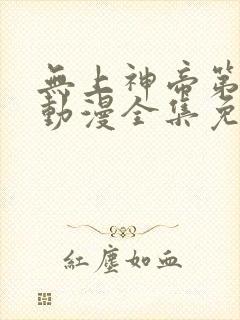 無上神帝第
動漫全集免
紅塵如血